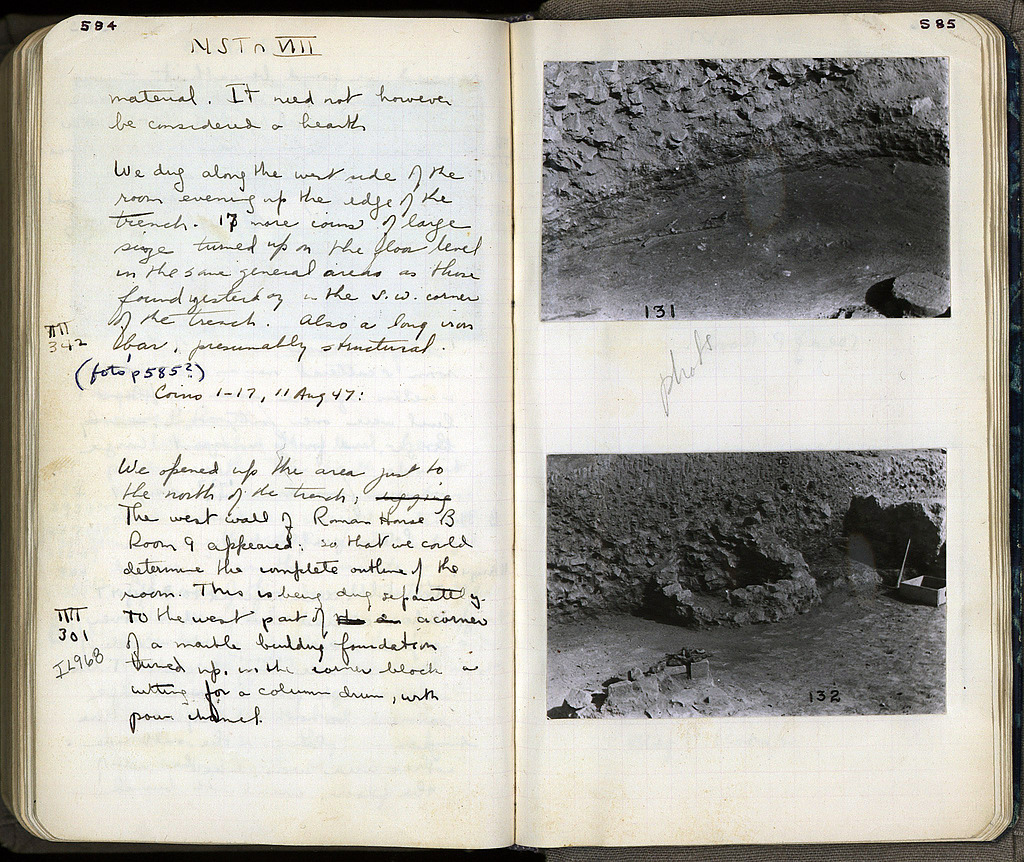 584
NSTn VIII
material. It need not however
be considered a hearth
We dug along the west side of the
room evening up the edge of the
trench. 17 more coins of large
size turned up on the floor level
in the same general areas as those
found yesterday in the S.W. corner
of the trench. Also a long iron
ΠΠ
342
bar, presumably structural.
(foto p 585?)
Coins 1-17, 11 Aug 47:
We opened up the area just to
the north of the trench; digging
The west wall of Roman House B
Room 9 appeared: so that we could
determine the complete outline of the
room. This is being dug separately.
ΠΠ
301
IL968
To the west part of a corner
of a marble building foundation
turned up, in the corner block a
cutting for a column drum, with
pour channel.
585
131
photo
132